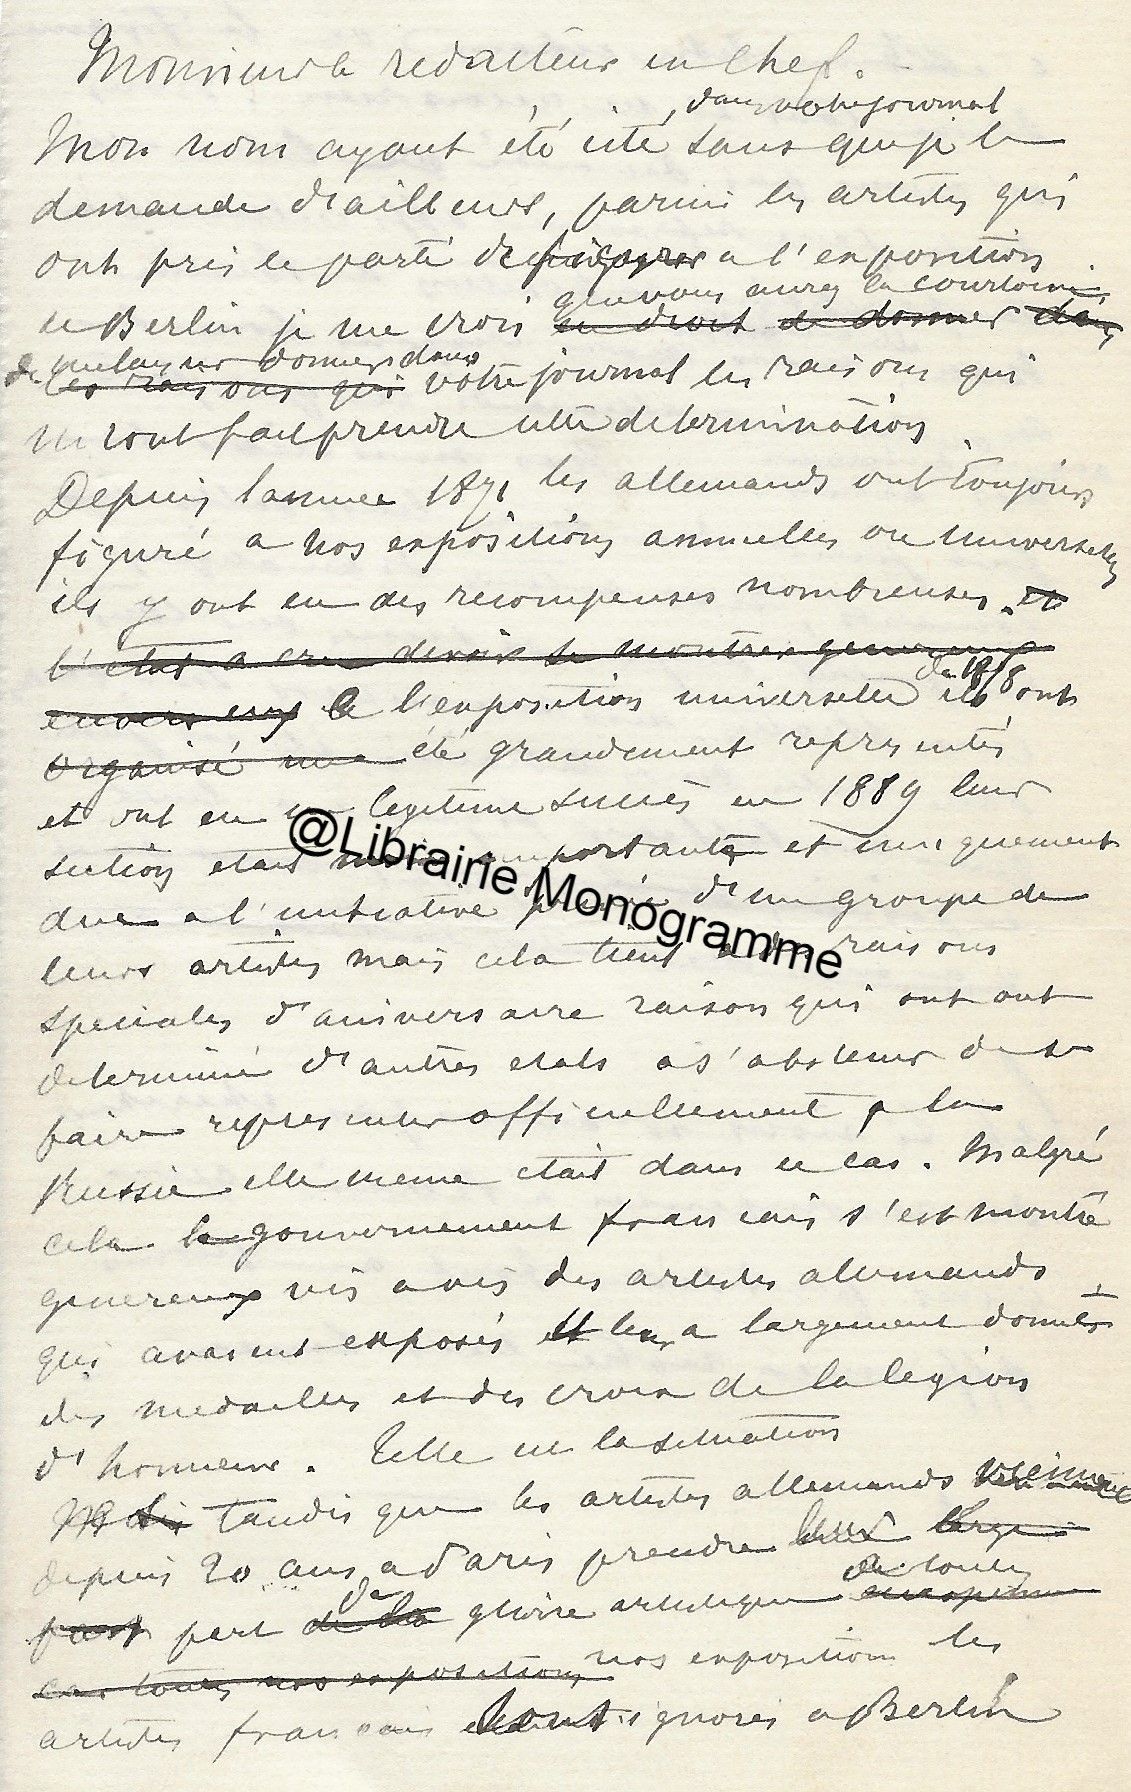 Monsieur le redacteur en chef.
dans votre journal
Mon nom ayant été cité, sans que je le
demande d'ailleurs, parmi les artistes qui
ont pris le parti de figurer a l'exposition
que vous aurez la courtoisie
de Berlin je me crois le droit de donner dans
de me laisser donner dans
les raisons qui votre journal les raisons qui
m'ont fait prendre cette determination.
Depuis l'annee 1871 les allemands ont toujours
figuré a nos expositions annuelles ou universelles
ils y ont eu des recompenses nombreuses. et
l'etat a cru devoir se montrer genereux
de 1878
envers eux a l'exposition universelle ils ont
organisé une été grandement representés
et ont eu un legitime succès en 1889 leur
section etait importante et uniquement
due a l'initiative privée d'un groupe de
leurs artistes mais cela tient a des raisons
speciales d'aniversaire raison qui ont ont
determiné d'autres etats a s'abstenir de se
faire representer officiellement, la
Russie elle meme etait dans ce cas. Malgré
cela le gouvernement francais s'est montré
genereux vis a vis des artistes allemands
qui avaient exposés et leur a largement donnés
des medailles et des croix de la legion
d'honneur. Telle est la situation
tandis que les artistes allemands viennent
depuis 20 ans a Paris prendre leur large
de toutes
de
part part de la gloire artistique europeenne
car toutes nos expositions nos expositions les
artistes francais sont ignorés a Berlin
@Librairie Monogramme